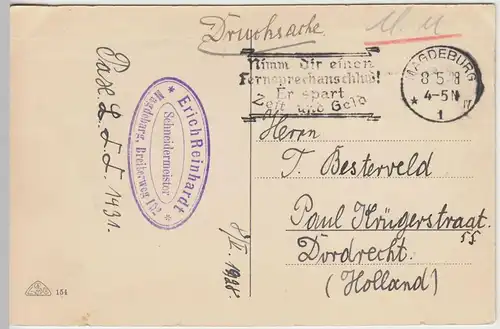 Drucksache.
Nimm dir einen
Fernsprechanschluß!
Er spart
Zeit und Geld
MAGDEBURG
8 5 28
4-5 N
* 1 n
* Erich Reinhardt *
Schneidermeister
Magdeburg, Breiteweg 152
Herrn
T. Besterveld
Paul Krügerstraat.
55
Dordrecht.
(Holland)
8/V. 1928
1931.
154